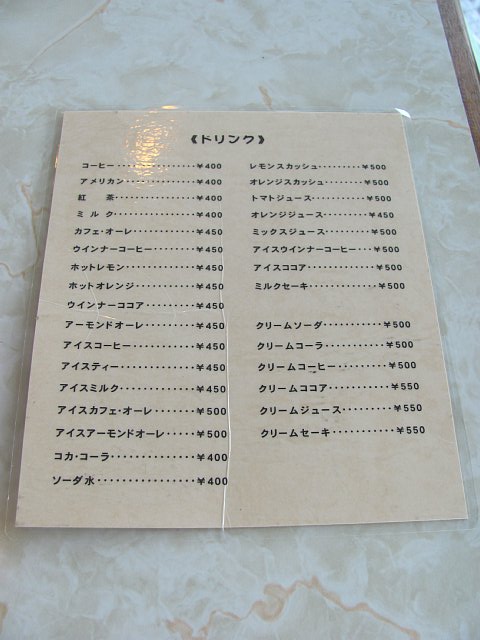 《ドリンク》
コーヒー・・・・・・・・・・・・・・・・¥400
アメリカン・・・・・・・・・・・・・・¥400
紅　茶・・・・・・・・・・・・・・・・¥400
ミ ル ク・・・・・・・・・・・・・・・・¥400
カフェ・オーレ・・・・・・・・・・・・¥450
ウインナーコーヒー・・・・・・・・・¥450
ホットレモン・・・・・・・・・・・・・¥450
ホットオレンジ・・・・・・・・・・・・¥450
ウインナーココア・・・・・・・・・・¥450
アーモンドオーレ・・・・・・・・・・¥450
アイスコーヒー・・・・・・・・・・・・¥450
アイスティー・・・・・・・・・・・・・・¥450
アイスミルク・・・・・・・・・・・・・・¥450
アイスカフェ・オーレ・・・・・・・¥500
アイスアーモンドオーレ・・・・・¥500
コカ・コーラ・・・・・・・・・・・・・・¥400
ソーダ水・・・・・・・・・・・・・・・・¥400
レモンスカッシュ・・・・・・・・・¥500
オレンジスカッシュ・・・・・・・・¥500
トマトジュース・・・・・・・・・・・¥500
オレンジジュース・・・・・・・・・¥450
ミックスジュース・・・・・・・・・¥500
アイスウインナーコーヒー・・・¥500
アイスココア・・・・・・・・・・・・・¥500
ミルクセーキ・・・・・・・・・・・・・¥500
クリームソーダ・・・・・・・・・・・¥500
クリームコーラ・・・・・・・・・・・¥500
クリームコーヒー・・・・・・・・・¥500
クリームココア・・・・・・・・・・・¥550
クリームジュース・・・・・・・・・¥550
クリームセーキ・・・・・・・・・・・¥550